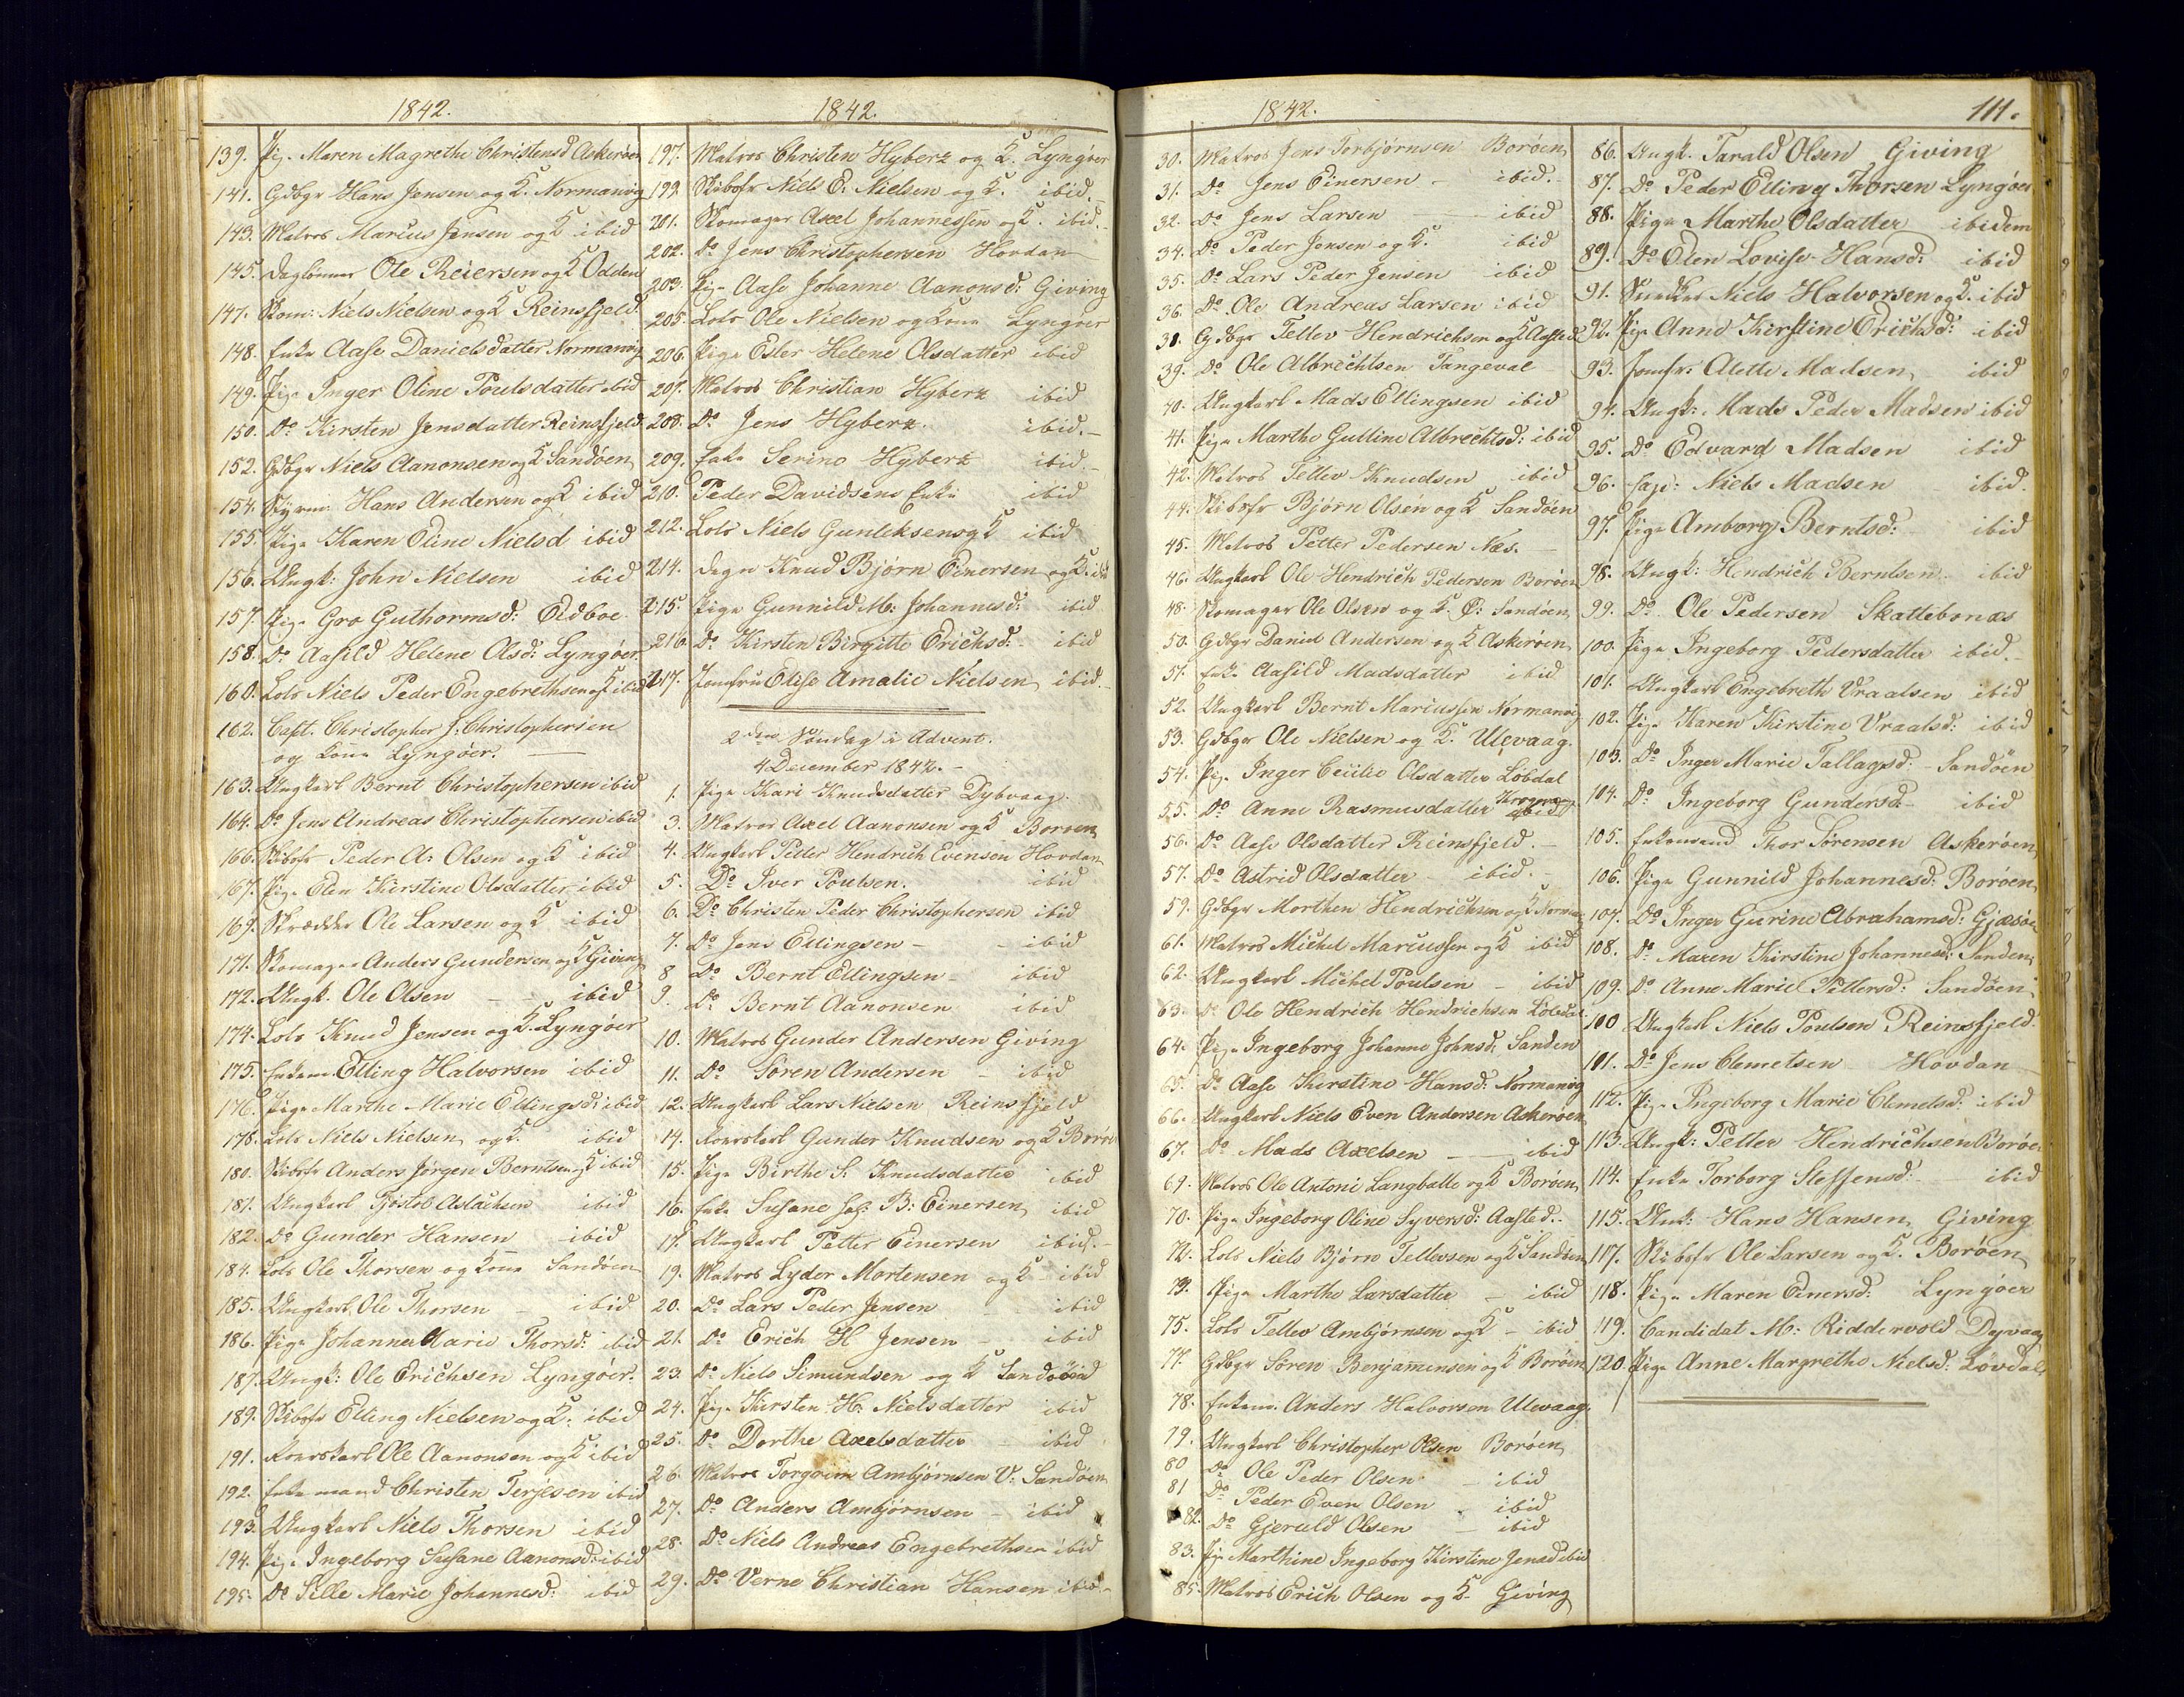 1842.
139. Pige Maren Magrethe Christensd Askerøen
141. Gdbgr Hans Jensen og K. Normanvig
143. Matros Marcus Jensen og K ibid
145. Daglønner Ole Reiersen og K Odden
147. Skom: Niels Nielsen og K Reinsfjeld
148. Enke Aase Danielsdatter Normanvig
149. Pige Inger Oline Poulsdatter ibid
150. Do Kirsten Jensdatter Reinsfjeld
152. Gdbgr Niels Aanonsen og K Sandøen
154. Styrm: Hans Andersen og K ibid
155. Pige Karen Oline Nielsd ibid
156. Ungk: John Nielsen ibid
157. Pige Gro Guthormsd: Eidboe
158. Do Aasild Helene Olsd: Lyngøer
160. Lods Niels Peder Engebrethsen og K ibid
162. Capt. Christopher J: Christophersen
og Kone Lyngøer.
163. Ungkarl Bernt Christophersen ibid
164. Do Jens Andreas Christophersen ibid
166. Skibsfr Peder A: Olsen og K ibid
167. Pige Elen Kirstine Olsdatter ibid
169. Skrædder Ole Larsen og K ibid
171. Skomager Anders Gundersen og K Giving
172. Ungk. Ole Olsen ibid
174. Lods Knud Jensen og K. Lyngøer
175. Enkem. Elling Halvorsen ibid
176. Pige Marthe Marie Ellingsd: ibid
178. Lods Niels Nielsen og K. ibid
180. Skibsfr Anders Jørgen Berntsen og K ibid
181. Ungkarl Tjøstol Aslachsen ibid
182. Do Gunder Hansen ibid
184. Lods Ole Thorsen og Kone Sandøen
185. Ungkarl Ole Thorsen ibid
186. Pige Johanne Marie Thorsd: ibid
187. Ungk: Ole Erichsen Lyngøer.
189. Skibsfr Elling Nielsen og K: ibid
191. Konekarl Ole Aanonsen og K ibid
192. Enkemand Christen Terjesen ibid
193. Ungkarl Niels Thorsen ibid
194. Pige Ingeborg Susane Aanonsd: ibid
195. Do Sille Marie Johannesd: ibid
1842.
197. Matros Christen Hyberz og K. Lyngøer
199. Skibsfr Niels E. Nielsen og K. ibid.
201. Skomager Axel Johannessen og K. ibid.
202. Do Jens Christophersen Hovdan
203. Pige Aase Johanne Aanonsd: Giving
205. Lods Ole Nielsen og Kone Lyngøer
206. Pige Ester Helene Olsdatter ibid
207. Matros Christian Hyberz ibid
208. Do Jens Hyberz. ibid.
209. Enke Serine Hyberz ibid.
210. Peder Davidsens Enke ibid
212. Lods Niels Gunleksen og K ibid
214. Degn Knud Bjørn Einersen og K. ibid
215. Pige Gunnild M: Johannesd: ibid
216. Do Kirsten Birgitte Erichsd: ibid
217. Jomfru Elise Amalie Nielsen ibid.
2den Søndag i Advent.
4 December 1842.
1. Pige Kari Knudsdatter Dybvaag.
3. Matros Axel Aanonsen og K Borøen
4. Ungkarl Peder Hendrich Evensen Hovdan
5. Do Iver Poulsen. ibid
6. Do Christen Peder Christophersen ibid
7. Do Jens Ellingsen - ibid
8 Do Bernt Ellingsen ibid
9. Do Bernt Aanonsen ibid
10. Matros Gunder Andersen Giving
11. Do Søren Andersen - ibid
12. Ungkarl Lars Nielsen Reinsfjeld
14. Konekarl Gunder Knudsen og K Borøen
15. Pige Birthe S. Knudsdatter ibid
16. Enke Susane B: Einersen ibid
17. Ungkarl Petter Einersen ibid.
19. Matros Lyder Mortensen og K - ibid
20. Do Lars Peder Jensen ibid
21. Do Erich H Jensen - ibid
23. Do Niels Simundsen og K Sandøen
24. Pige Kirsten H: Nielsdatter ibid
25. Do Dorthe Axelsdatter - ibid
26. Matros Torgrim Ambjørnsen V: Sandøen
27. Do Anders Ambjørnsen - ibid
28. Do Niels Andreas Engebrethsen ibid
29. Do Verne Christian Hansen ibid
1842.
30. Matros Jens Torbjørnsen Borøen
31. Do Jens Einersen - ibid.
32. Do Jens Larsen ibid
34. Do Peder Jensen og K. ibid
35. Do Lars Peder Jensen ibid
36. Do Ole Andreas Larsen ibid
38. Gdbgr Tellev Hendrichsen og K Aasted
39. Do Ole Albrechtsen Tangevae
40. Ungkarl Mads Ellingsen ibid
41. Pige Marthe Gulline Albrechtsd: ibid
42. Matros Tellev Knudsen ibid
44. Skibsfr Bjørn Olsen og K Sandøen
45. Matros Petter Pedersen Næs.
46. Ungkarl Ole Hendrich Pedersen Borøen
48. Skomager Ole Olsen og K. Ø: Sandøen
50. Gdbgr Daniel Andersen og K Askerøen
51. Enke Aasild Madsdatter ibid
52. Ungkarl Bernt Mariussen Normanvig
53. Gdbgr Ole Nielsen og K. Ulevaag.
54. Pige Inger Cecilie Olsdatter Løbdal
55. Do Anne Rasmusdatter Krogen
56. Do Aase Olsdatter Reinsfjeld.
57. Do Astrid Olsdatter ibid.
59. Gdbgr Morthen Hendrichsen og K Norman
61. Matros Michel Marcussen og K ibid
62. Ungkarl Michel Poulsen - ibid
63. Do Ole Hendrich Hendrichsen Løbdal
64. Pige Ingeborg Johanne Johnsd: Sanden
65. Do Aase Kirstine Hansd: Normanvig
66. Ungkarl Niels Even Andersen Askerøen
67. Do Mads Axelsen ibid
69. Matros Ole Antoni Langballe og K Borøen
70. Pige Ingeborg Oline Syversd: Aasted.
72. Lods Niels Bjørn Tellevsen og K Sandøen
73. Pige Marthe Larsdatter - ibid
75. Lods Tellev Ambjørnsen og K - ibid
77. Gdbgr Søren Benjaminsen og K Borøen
78. Enkem. Anders Halvorsen Ulevaag.
79. Ungkarl Christopher Olsen Borøen
80 Do Ole Peder Olsen - ibid
81 Do Peder Even Olsen ibid
82. Do Gjeruld Olsen - ibid
83. Pige Marthine Ingeborg Kirstine Jensd ibid
85. Matros Erich Olsen og K. Giving
111.
86. Ungk. Tarald Olsen Giving
87. Do Peder Elling Thorsen Lyngøer
88. Pige Marthe Olsdatter ibidem
89. Do Elen Lovise Hansd: ibid
91. Snedker Niels Halvorsen og K. ibid
92. Pige Anne Kirstine Erichsd: ibid
93. Jomfr: Alette Madsen ibid
94. Ungk: Mads Peder Madsen ibid
95. Do Edvard Madsen ibid
96. Cap: Niels Madsen ibid.
97. Pige Amborg Berntsd: ibid
98. Ungk: Hendrich Berntsen ibid
99. Do Ole Pedersen Skattebonæs
100 Pige Ingeborg Pedersdatter ibid.
101. Ungkarl Engebreth Vraalsen ibid
102. Pige Karen Kirstine Vraalsd: ibid
103. Do Inger Marie Tallagsd: Sandøen
104. Do Ingeborg Gundersd: ibid
105. Enkemand Thor Sørensen Askerøen
106. Pige Gunnild Johannesd: Borøen
107. Do Inger Gurine Abrahamsd: Gjæsøen
108. Do Maren Kirstine Johannesd: Sanden
109. Do Anne Marie Pettersd: Sandøen
100 Ungkarl Niels Poulsen Reinsfjeld.
101. Do Jens Clemetsen Hovdan
112. Pige Ingeborg Marie Clemetsd: ibid
113. Ungk: Petter Hendrichsen Borøen
114. Enke Torborg Steffensd: ibid
115. Unk: Hans Hansen Giving
117. Skibsfr Ole Larsen og K. Borøen
118. Pige Maren Einersd: Lyngøer
119. Candidat M: Riddervold Dypvaag
120. Pige Anne Margrethe Nielsd: Løvdal